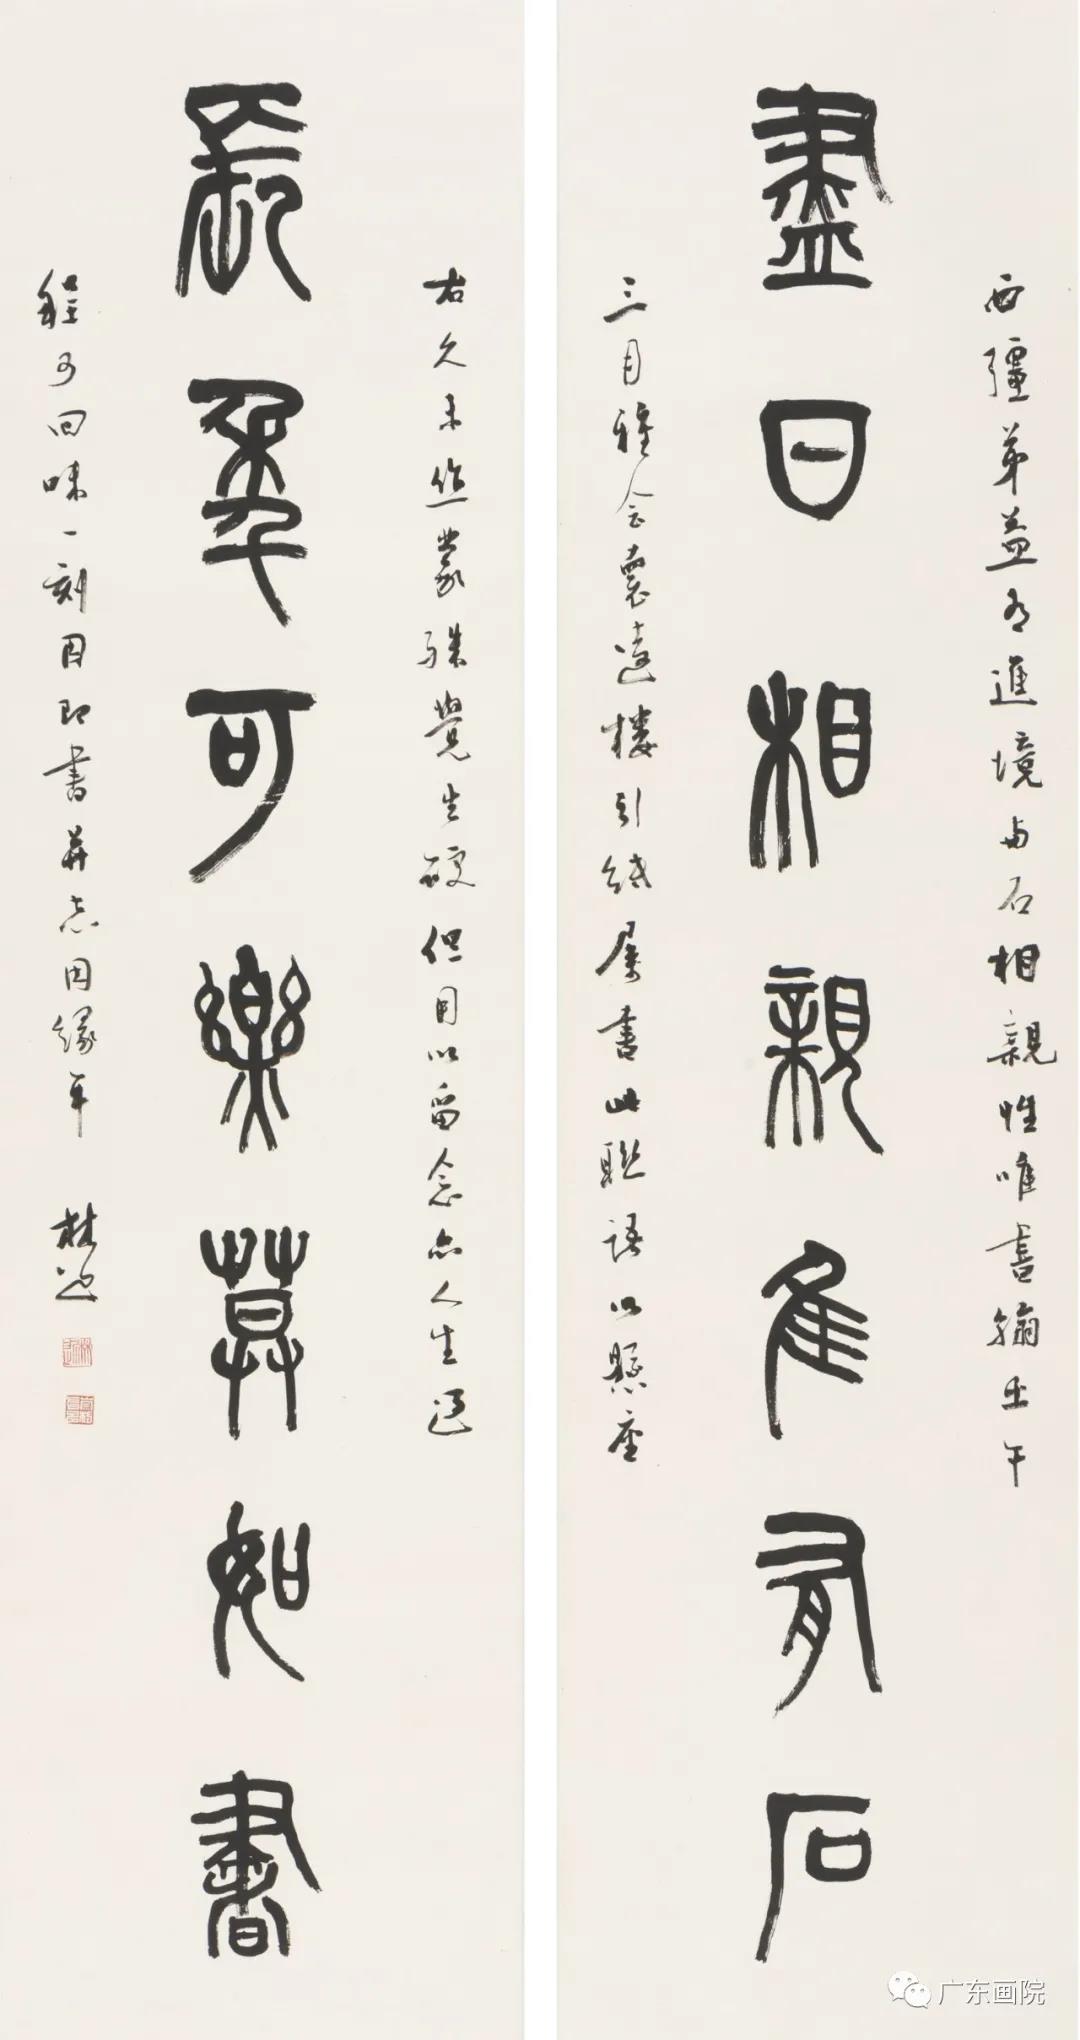 盡日相親惟有石
西疆弟益有進境与石相親性唯書翰壬午
三月雅會襄遠樓引紙属書此聯語以懸座
右久未作篆殊覺生硬但目以留念亦人生過
長年可樂莫如書
程可回味一刻因即書并志因緣耳
广东画院